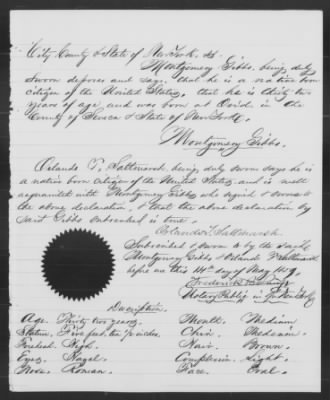 City County & State of New York ss.
Montgomery Gibbs, being duly
sworn deposes and says that he is a native born
citizen of the United States, that he is thirty two
years of age and was born at Ovid in the
County of Seneca & State of New York.
Montgomery Gibbs.
Orlando T. Saltmarsh, being duly sworn says he is
a native born citizen of the United States and is well
acquainted with Montgomery Gibbs, who signed & swore to
the above declaration & that the above declaration by
said Gibbs subscribed is true.
Orlando T. Saltmarsh
Subscribed & sworn to by the said
Montgomery Gibbs & Orlando T. Saltmarsh
before me this 14th of May
Frederick
Notary Public in New York
Description.
Age. Thirty two years.
Stature. Five feet, ten inches.
Forehead. High.
Eyes. Hazel.
Nose. Roman.
Mouth. Medium
Chin. Medium.
Hair. Brown.
Complexion. Light.
Face. Oval.